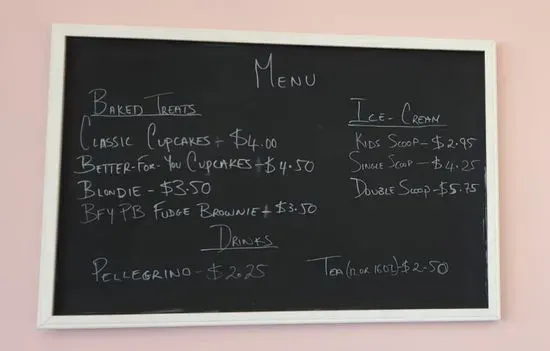 MENU
BAKED TREATS
CLASSIC CUPCAKES - $4.00
BETTER-FOR-YOU CUPCAKES - $4.50
BLONDIE - $3.50
BFY PB FUDGE BROWNIE - $3.50
ICE-CREAM
KIDS SCOOP - $2.95
SINGLE SCOOP - $4.25
DOUBLE SCOOP - $5.75
DRINKS
PELLEGRINO - $2.25
TEA (12 OR 16OZ) - $2.50